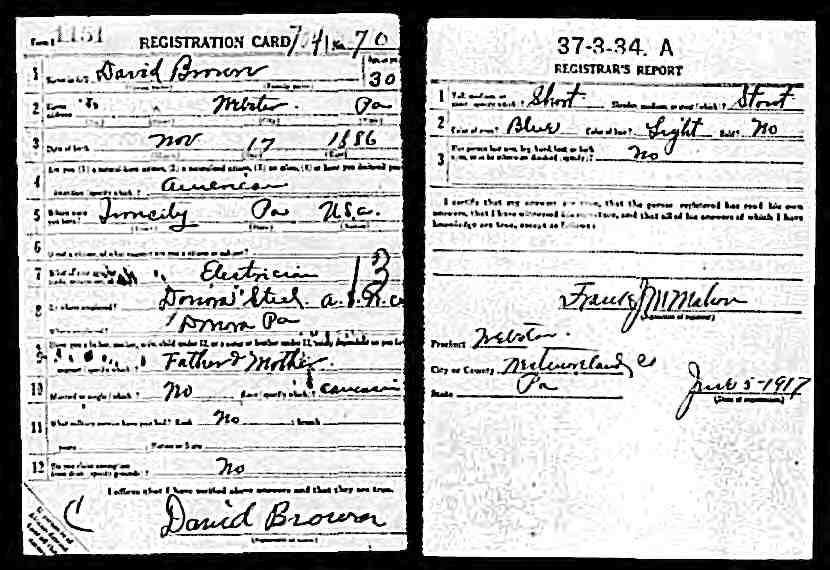 Form 1 1151 REGISTRATION CARD No. 70
1 Name in full David Brown Age in yrs.
(Given name) (Family name) 30
2 Home address Webster Pa
(No.) (Street) (City) (State)
3 Date of birth Nov 17 1886
(Month) (Day) (Year)
Are you (1) a natural-born citizen, (2) a naturalized citizen, (3) an alien, (4) or have you declared your
4 intention (specify which)? American
5 Where were you born? Pa U.S.a.
(Town) (State) (Nation)
6 If not a citizen, of what country are you a citizen or subject?
7 What is your present trade, occupation, or Electrician 13
8 By whom employed? Donora Steel
Where employed? Donora Pa
Have you a father, mother, wife, child under 12, or a sister or brother under 12, solely dependent on you for
9 support (specify which)? Father & Mother
10 Married or single (which)? No Race (specify which)? Caucasian
11 What military service have you had? Rank No ; branch
years ; Nation or State
12 Do you claim exemption from draft (specify grounds)? No
I affirm that I have verified above answers and that they are true.
David Brown
(Signature or mark)
37-3-34. A
REGISTRAR'S REPORT
1 Tall, medium, or short (specify which)? Short Slender, medium, or stout (which)? Stout
2 Color of eyes? Blue Color of hair? Light Bald? No
3 Has person lost arm, leg, hand, foot, or both eyes, or is he otherwise disabled (specify)? No
I certify that my answers are true, that the person registered has read his own
answers, that I have witnessed his signature, and that all of his answers of which I have
knowledge are true, except as follows:
Frank J McMahon
(Signature of registrar)
Precinct Webster.
City or County Westmoreland Co
State Pa June 5-1917
(Date of registration)